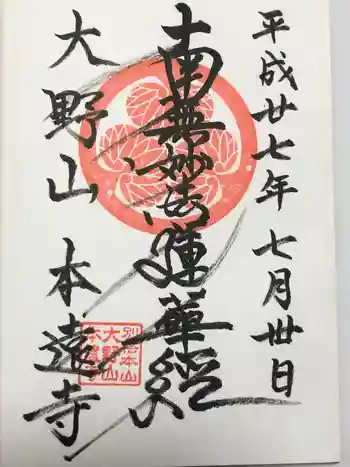 平成廿七年七月卅日
南無妙法蓮華経
大野山 本遠寺
別格本山
大野山
本遠寺